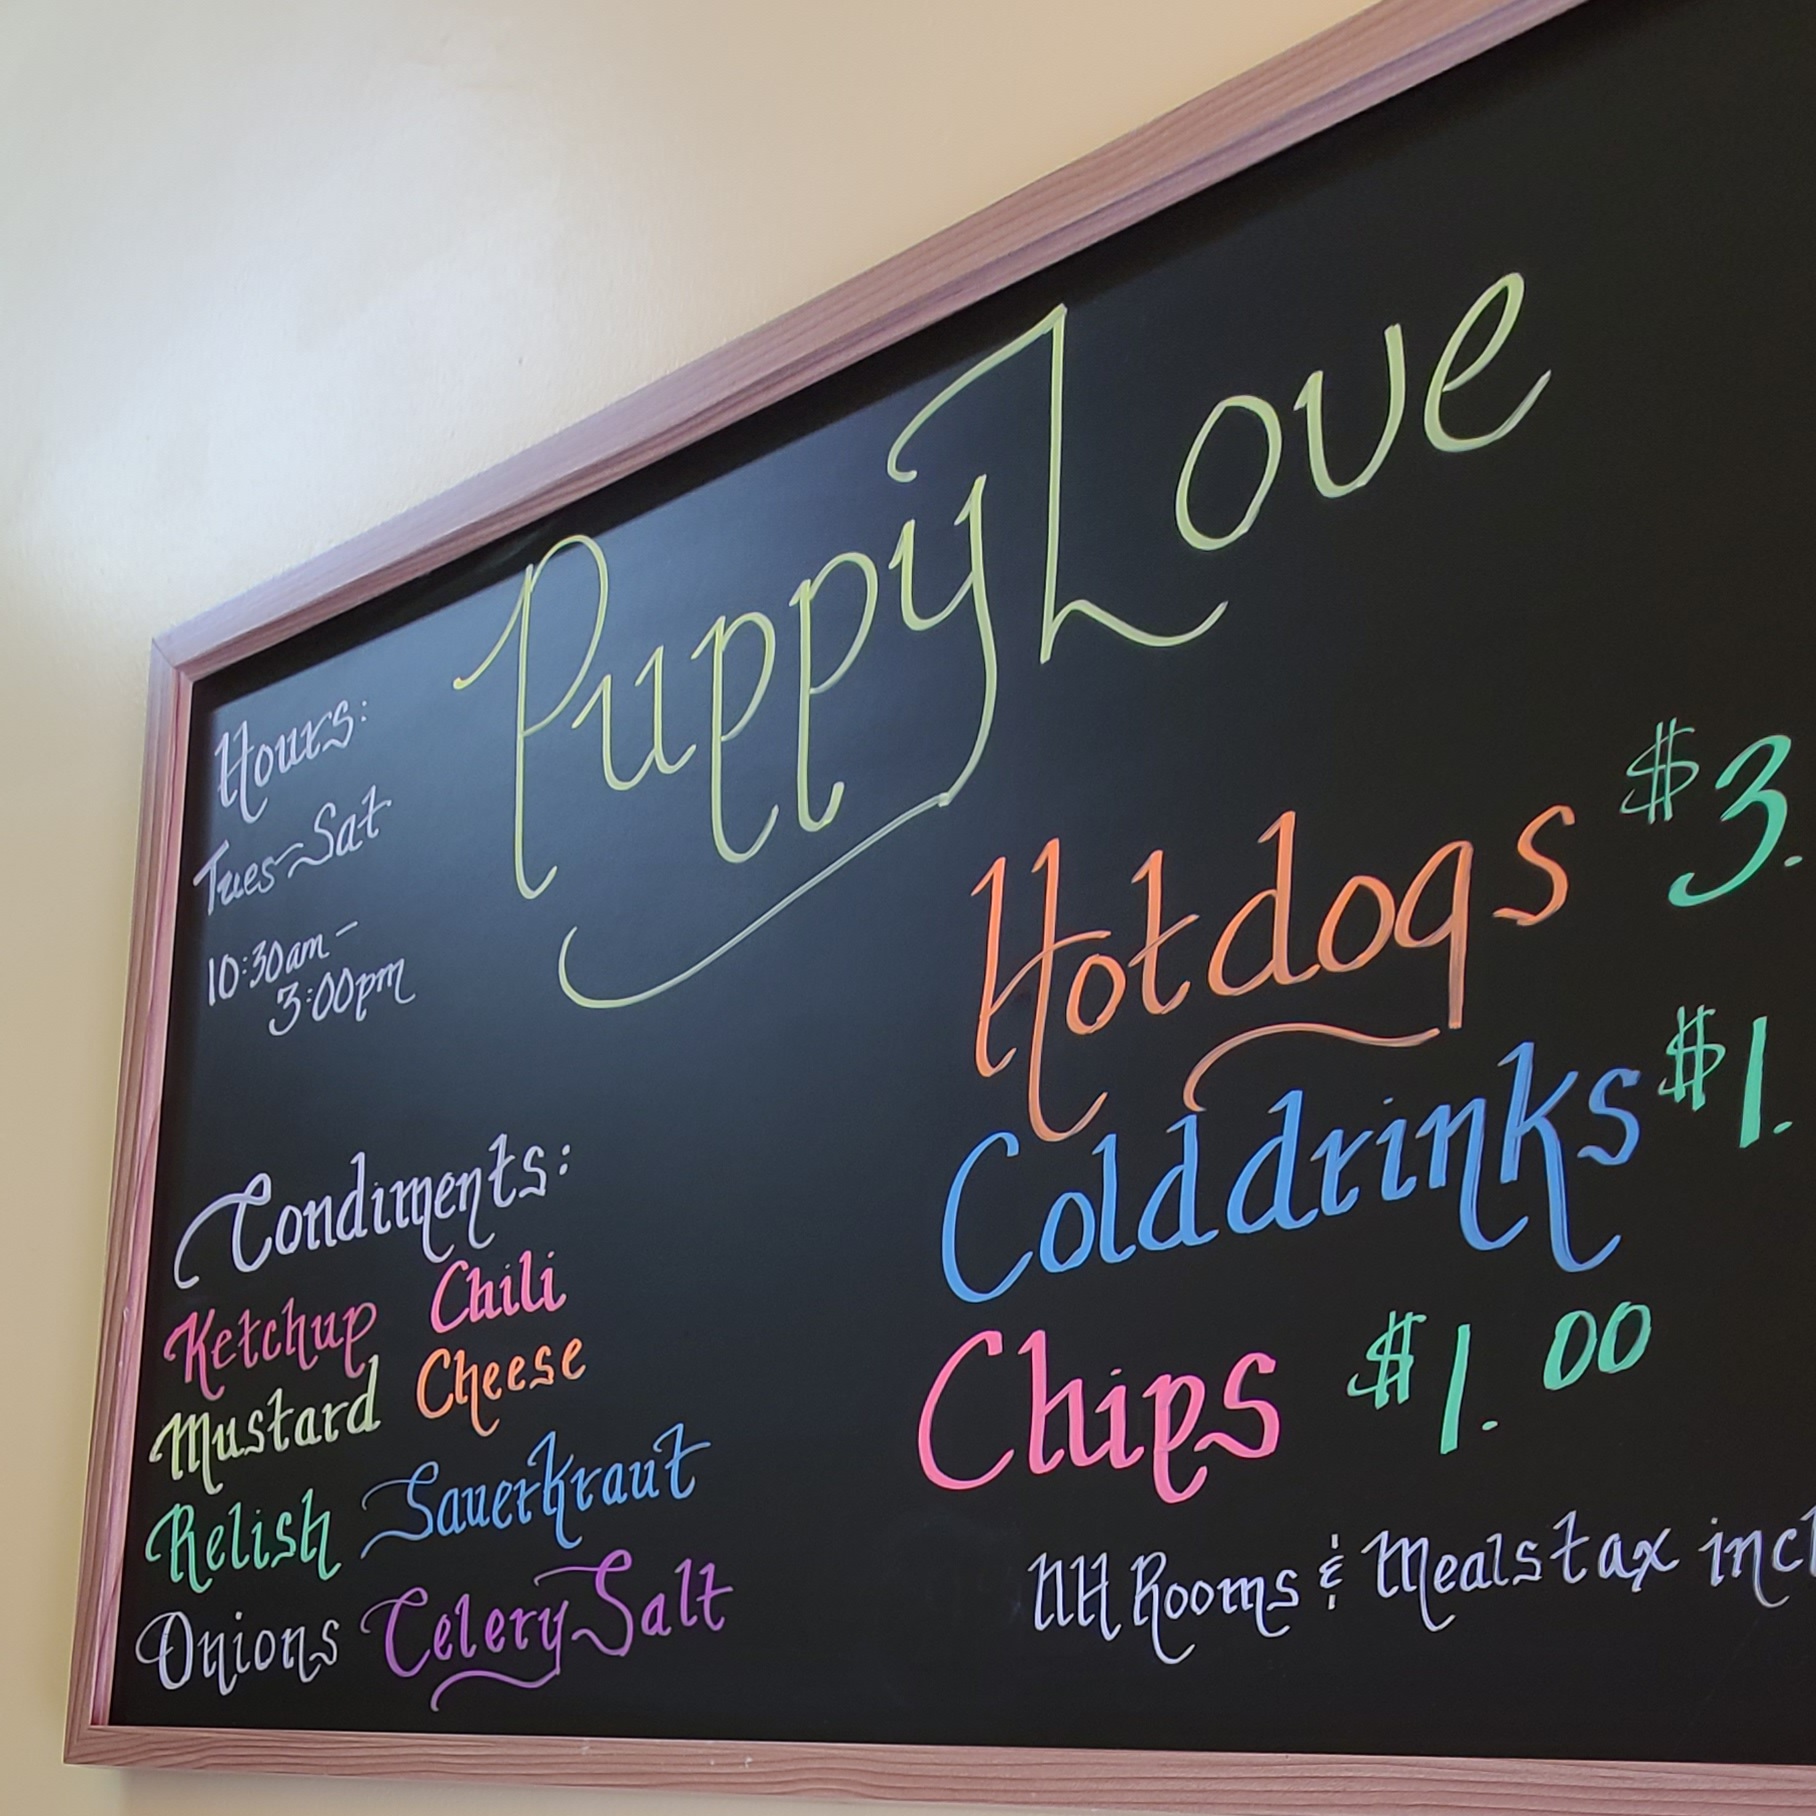 Puppy Love
Hours:
Tues-Sat
10:30am-
3:00pm
Condiments:
Ketchup Chili
Mustard Cheese
Relish Sauerkraut
Onions Celery Salt
Hotdogs $3.
Cold drinks $1.
Chips $1.00
NH Rooms & Meals tax incl